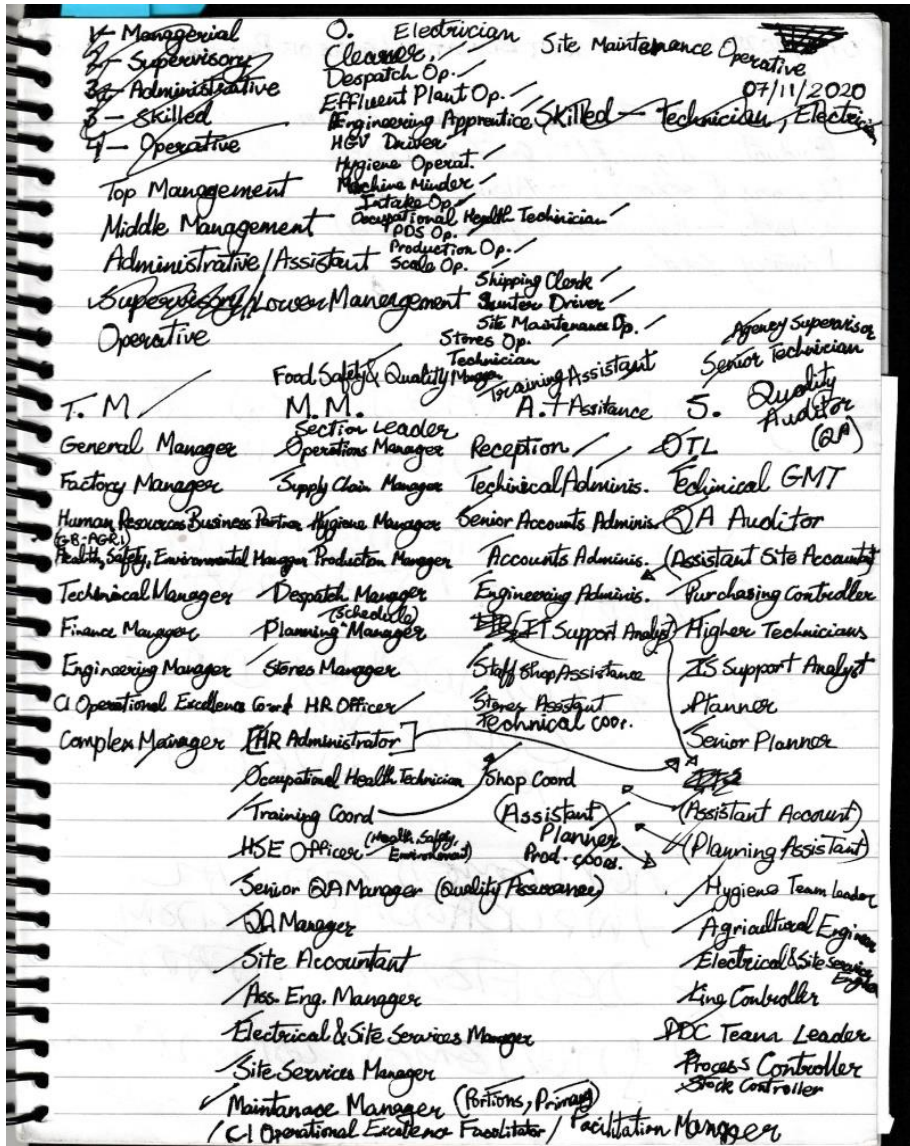 1- Managerial
2- Supervisory
3- Administrative
3- Skilled
4- Operative
Top Management
Middle Management
Administrative/Assistant
Supervisory/Lower Management
Operative
O. Electrician
Cleaner
Despatch Op.
Effluent Plant Op.
Engineering Apprentice
HGV Driver
Hygiene Operat.
Machine Minder
Intake Op.
Occupational Health Techinician
PDS Op.
Production Op.
Scale Op.
Shipping Clerk
Shunter Driver
Site Maintenance Op.
Stores Op.
Technician
Training Assistant
Site Maintenance Operative
07/11/2020
Skilled - Technician, Electrician
Agency Supervisor
Senior Technician
Quality
Auditor
(QA)
Food Safety & Quality Manager
T. M.
General Manager
Factory Manager
Human Resources Business Partner
(GB-AGRI)
Health, Safety, Environmental Manager
Technical Manager
Finance Manager
Engineering Manager
CI Operational Excellence Coord
Complex Manager
M. M.
Section Leader
Operations Manager
Supply Chain Manager
Hygiene Manager
Production Manager
Despatch Manager
(Schedule)
Planning Manager
Stores Manager
HR Officer
HR Administrator
Occupational Health Technician
Training Coord
HSE Officer (Health, Safety,
Environment)
Senior QA Manager (Quality Assurance)
QA Manager
Site Accountant
Ass. Eng. Manager
Electrical & Site Services Manager
Site Services Manager
Maintanace Manager (Portions, Primary)
/ CI Operational Excellence Facilitator / Facilitation Manager
A. + Assitance
Reception
Techinical Adminis.
Senior Accounts Adminis.
Accounts Adminis.
Engineering Adminis.
(IT Support Analyst)
Staff Shop Assistance
Stores Assistant
Technical coor.
Shop Coord
(Assistant
Planner
Prod. coor.
S.
OTL
Techinical GMT
QA Auditor
(Assistant Site Accountant
Purchasing Controller
Higher Technicians
IS Support Analyst
Planner
Senior Planner
(Assistant Account)
(Planning Assistant)
Hygiene Team leader
Agricultural Engineer
Electrical & Site Service
Engineer
Line Controller
PDC Team Leader
Process Controller
Stock Controller